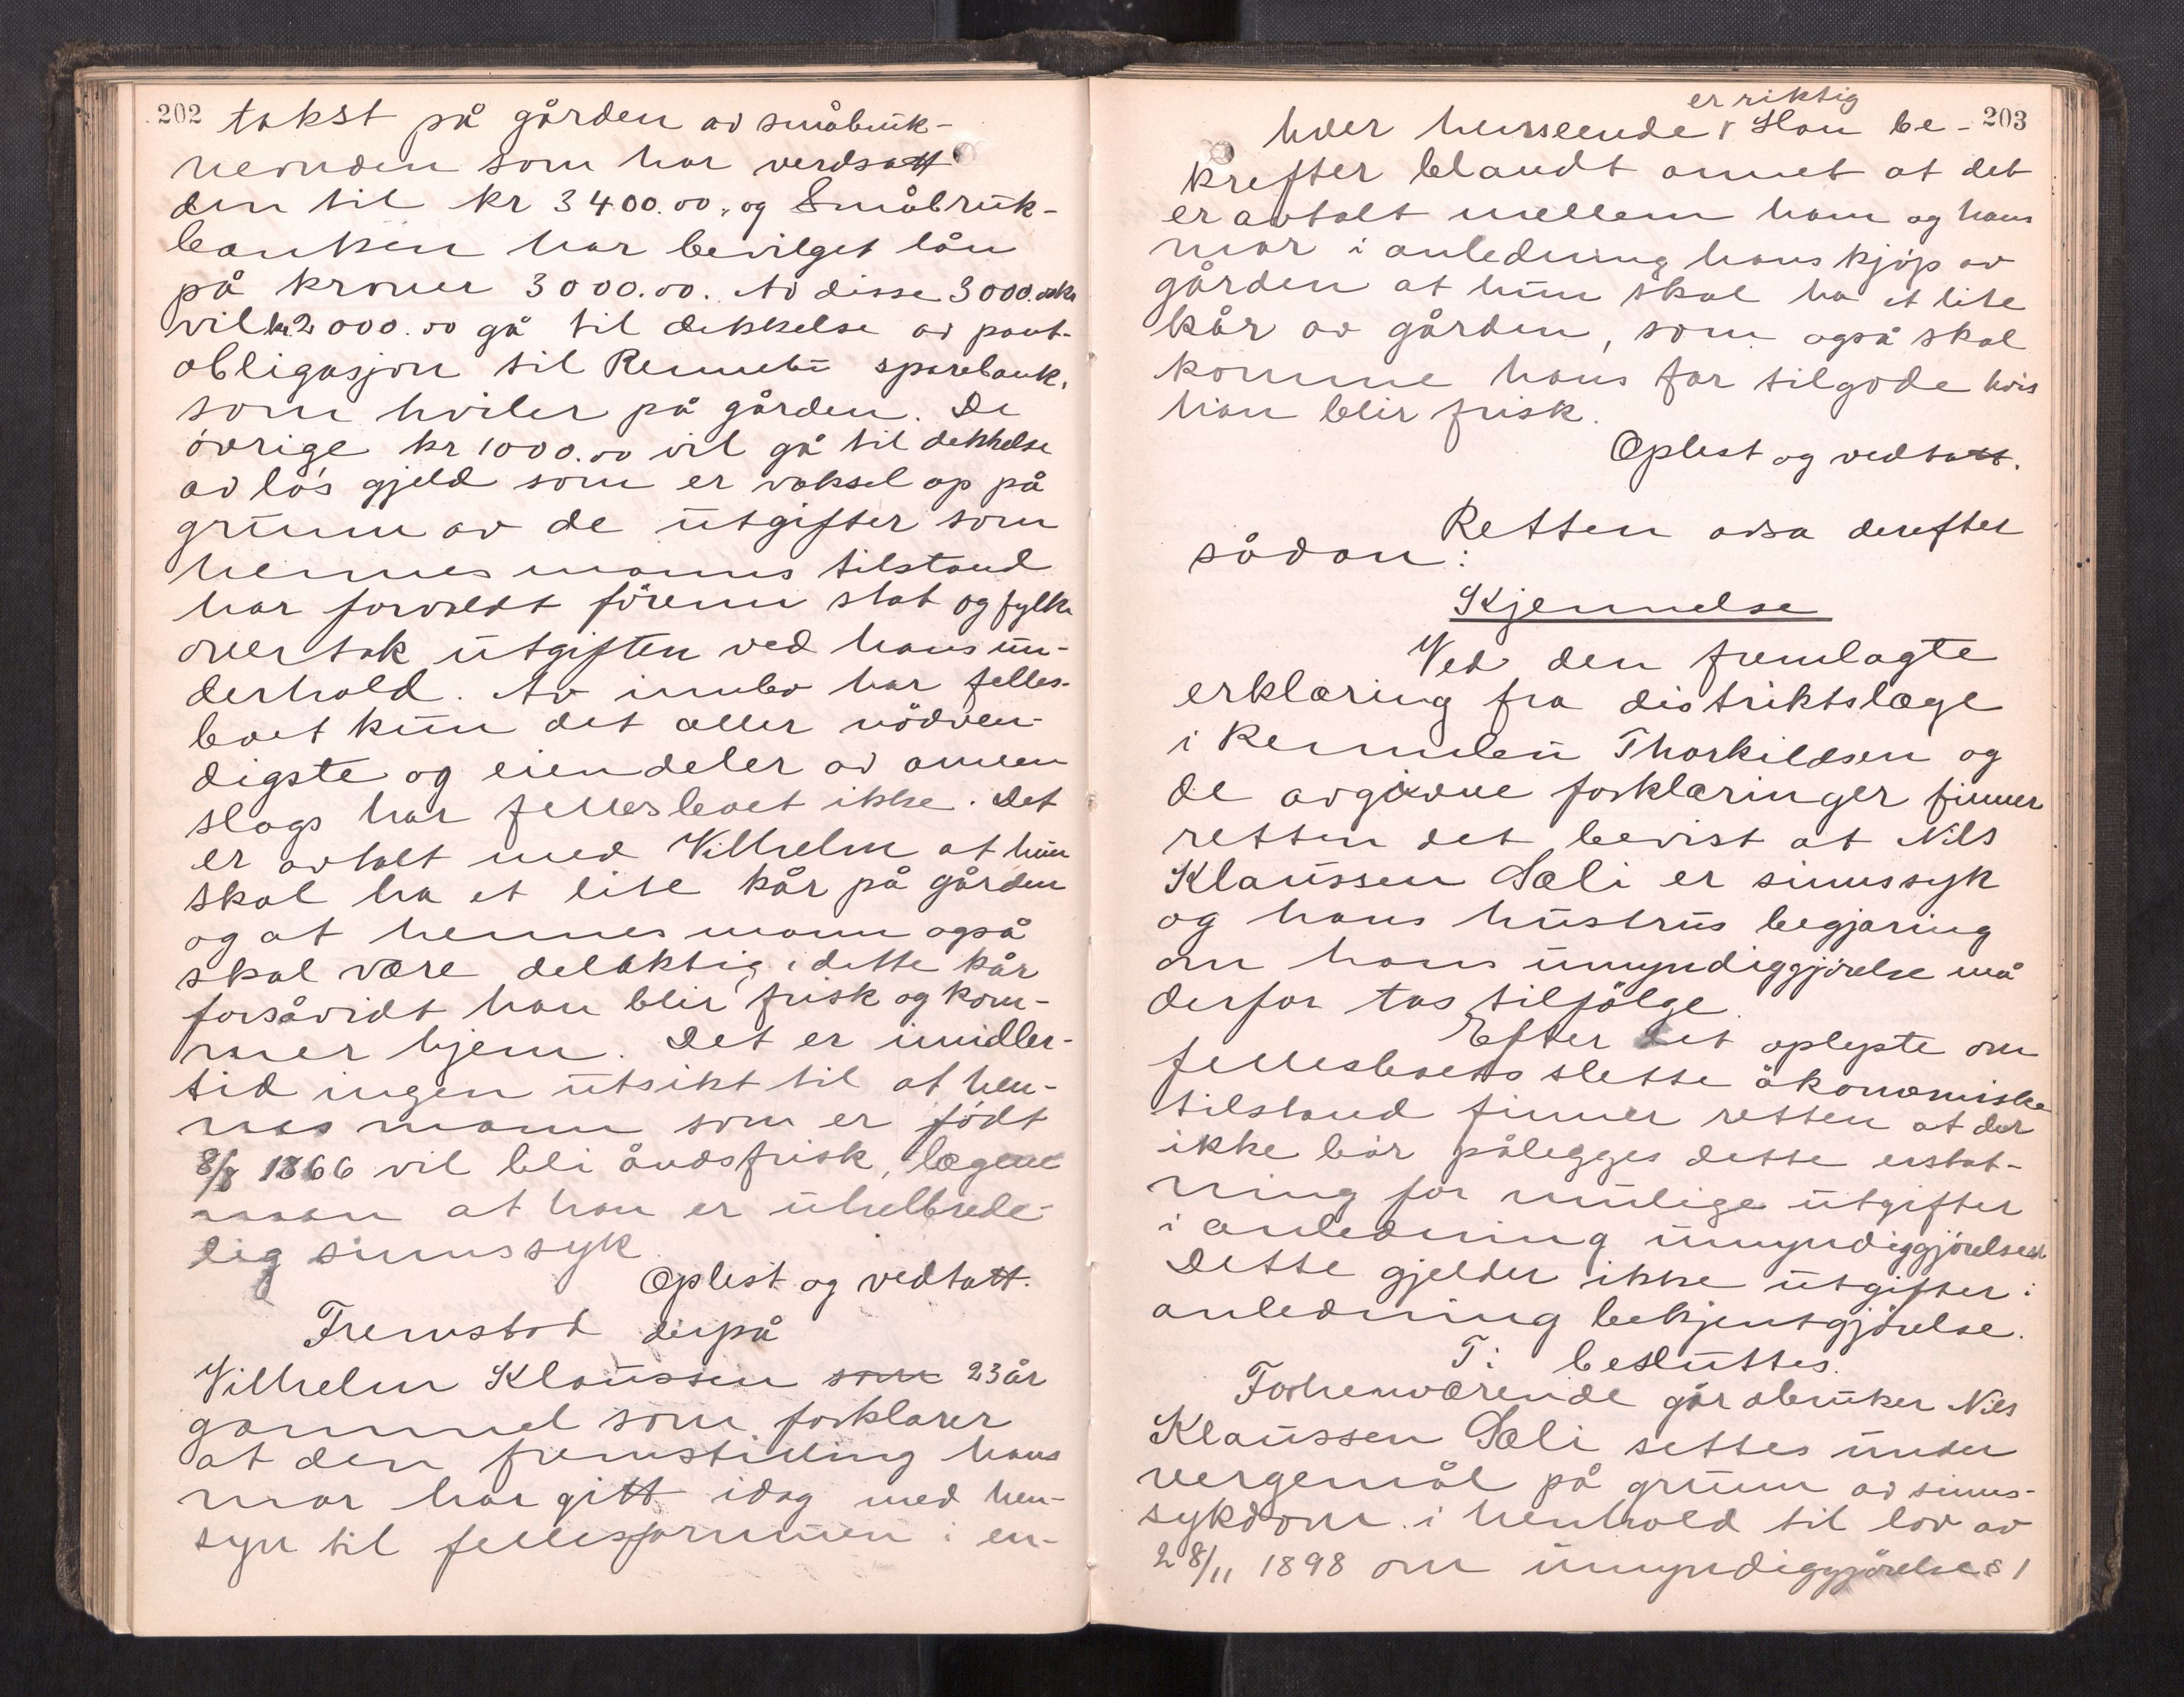 202
takst på gården av småbruk-
nevnden som har verdsatt
den til kr 3400.00, og Småbruk-
banken har bevilget lån
på kroner 3000.00. Av disse 3000.00 kr
vil kr 2000.00 gå til dekkelse av pant-
obligasjon til Rennebu sparebank,
som hviler på gården. De
övrige kr 1000.00 vil gå til dekkelse
av lös gjeld som er voksel op på
grunn av de utgifter som
hennes manns tilstand
har forvoldt förenn stat og fylke
overtok utgiften ved hans un-
derhold. Av innbo har felles-
boet kun det aller nödven-
digste og eiendeler av annen
slags har fellesboet ikke. Det
er avtalt med Vilhelm at hun
skal ha et lite kår på gården
og at hennes mann også
skal være delaktig i dette kår
forsåvidt han blir frisk og kom-
mer hjem. Det er imidler-
tid ingen utsikt til at hen-
nes mann som er födt
8/8 1866 vil bli åndsfrisk, lægene
mener at han er uhelbrede-
lig sinnssyk.
Oplest og vedtatt.
Fremstod derpå
Vilhelm Klaussen som 23 år
gammel som forklarer
at den fremstilling hans
mor har gitt idag med hen-
syn til fellesformuen i en-
203
er riktig
hver henseende. Han be-
krefter blandt annet at det
er avtalt mellem ham og hans
mor i anledning hans kjöp av
gården at hun skal ha et lite
kår av gården, som også skal
komme hans far tilgode hvis
han blir frisk.
Oplest og vedtatt.
Retten avsa derefter
sådan:
Kjennelse
Ved den fremlagte
erklæring fra distriktslæge
i Rennebu Thorkildsen og
de avgivne forklaringer finner
retten det bevist at Nils
Klaussen Sæli er sinnssyk
og hans hustrus begjæring
om hans umyndiggjörelse må
derfor tas tilfölge.
Efter det oplyste om
fellesboets slette ökonomiske
tilstand finner retten at der
ikke bör pålegges dette erstat-
ning for mulige utgifter
i anledning umyndiggjörelsen.
Dette gjelder ikke utgifter i
anledning bekjentgjörelse.
T: besluttes.
Forhenværende gårdbruker Nils
Klaussen Sæli settes under
vergemål på grunn av sinns-
sykdom i henhold til lov av
28/11 1898 om umyndiggjörelse § 1